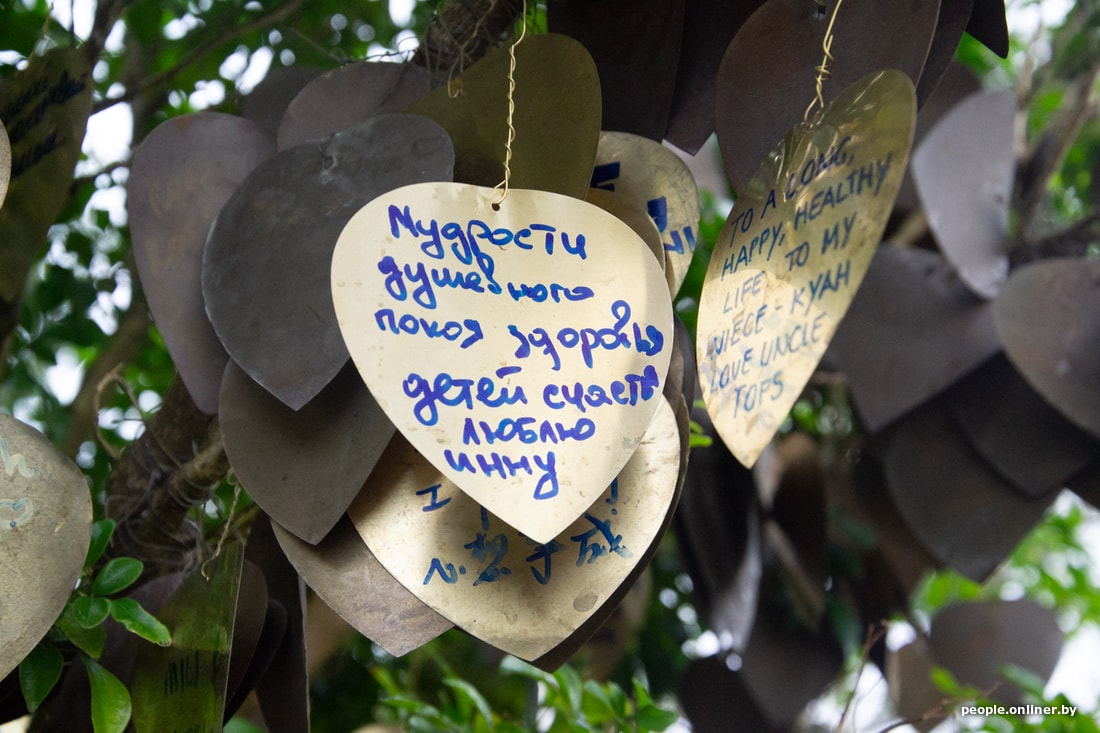 Мудрости
душевного
покоя здоровья
детей счастья
люблю
инну
TO A LONG,
HAPPY, HEALTHY
LIFE TO MY
NIECE - KYAH
LOVE UNCLE
TOPS
people.onliner.by